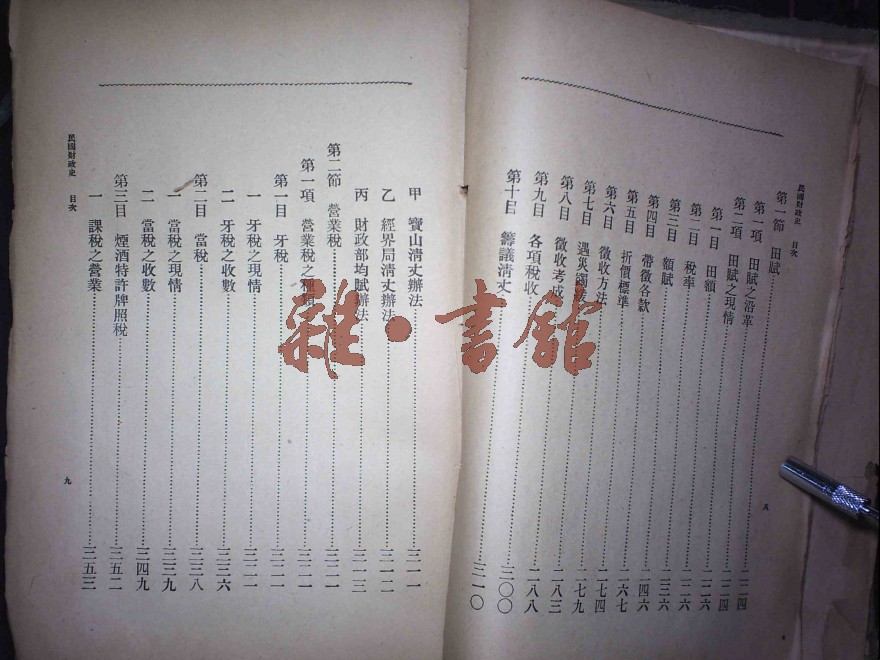 民國財政史 目次
第一節 田賦……一二四
第一項 田賦之沿革……一二四
第二項 田賦之現情……一二六
第一目 田額……一二六
第二目 稅率……一三六
第三目 額賦……一四六
第四目 帶徵各款……一六七
第五目 折價標準……一七四
第六目 徵收方法……一七九
第七目 遇災蠲緩
第八目 徵收考成……一八三
第九目 各項稅收……一八八
第十目 籌議清丈……二〇〇
二一〇
八
甲 寶山清丈辦法……二一一
乙 經界局清丈辦法……二一二
丙 財政部均賦辦法……二一三
第二節 營業稅……二二一
第一項 營業稅之種類……二二一
第一目 牙稅……二二一
一 牙稅之現情……二二一
二 牙稅之收數……二三六
第二目 當稅……二三八
一 當稅之現情……二三九
二 當稅之收數……二四九
第三目 煙酒特許牌照稅……二五二
一 課稅之營業……二五三
民國財政史 目次
九
雜·書館